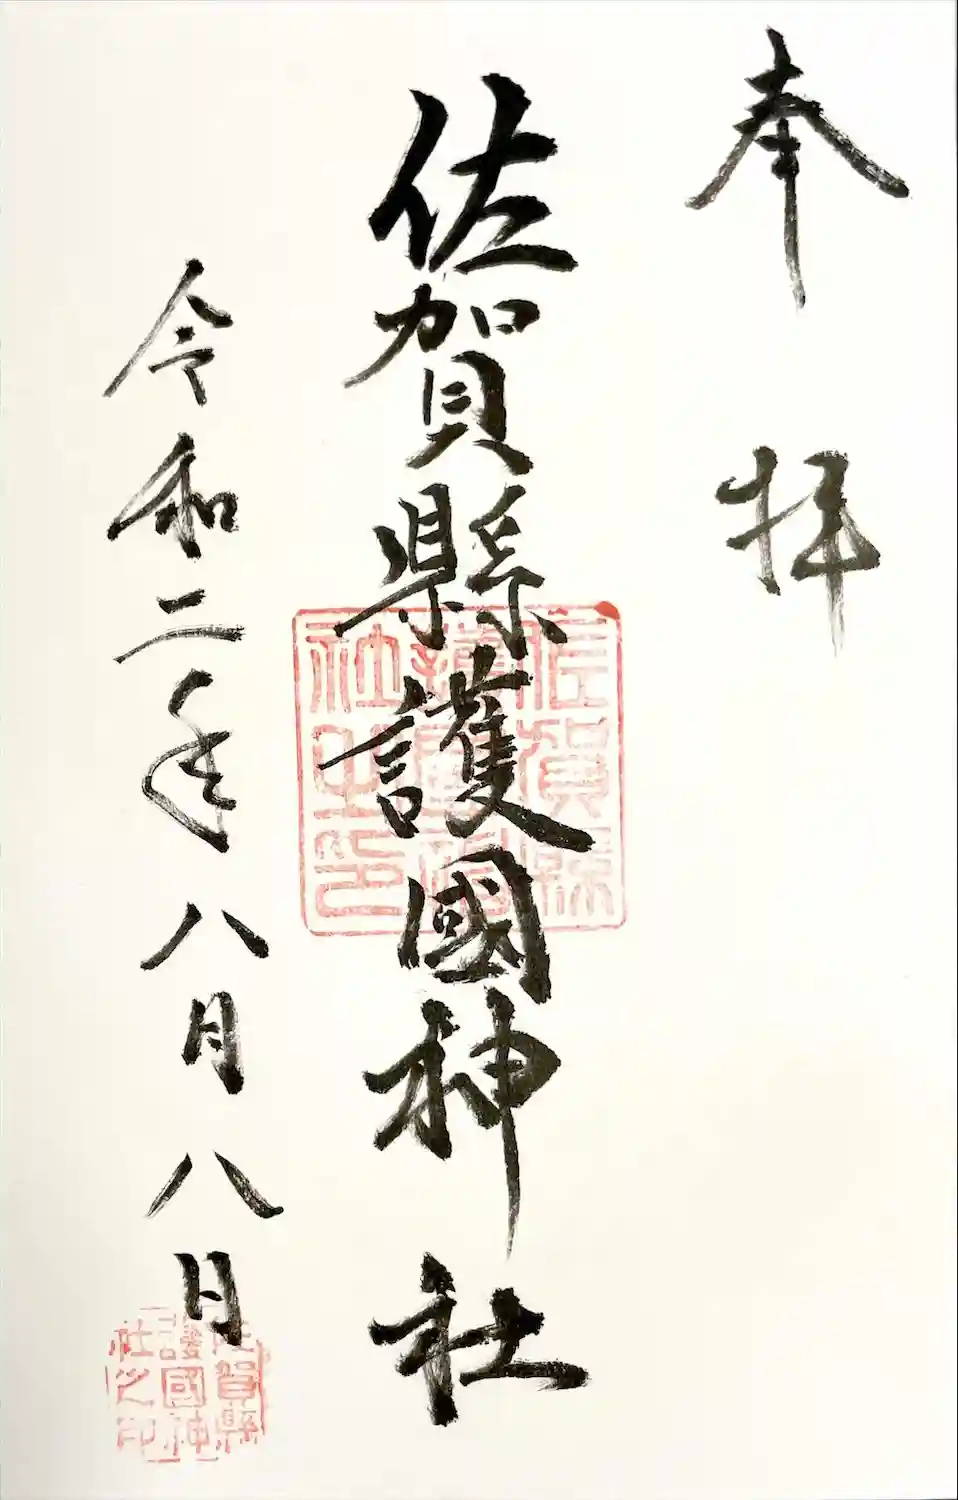 奉拝
佐賀縣護國神社
令和二年八月八日
佐賀縣
護國神
社之印
佐賀縣
護國神
社之印